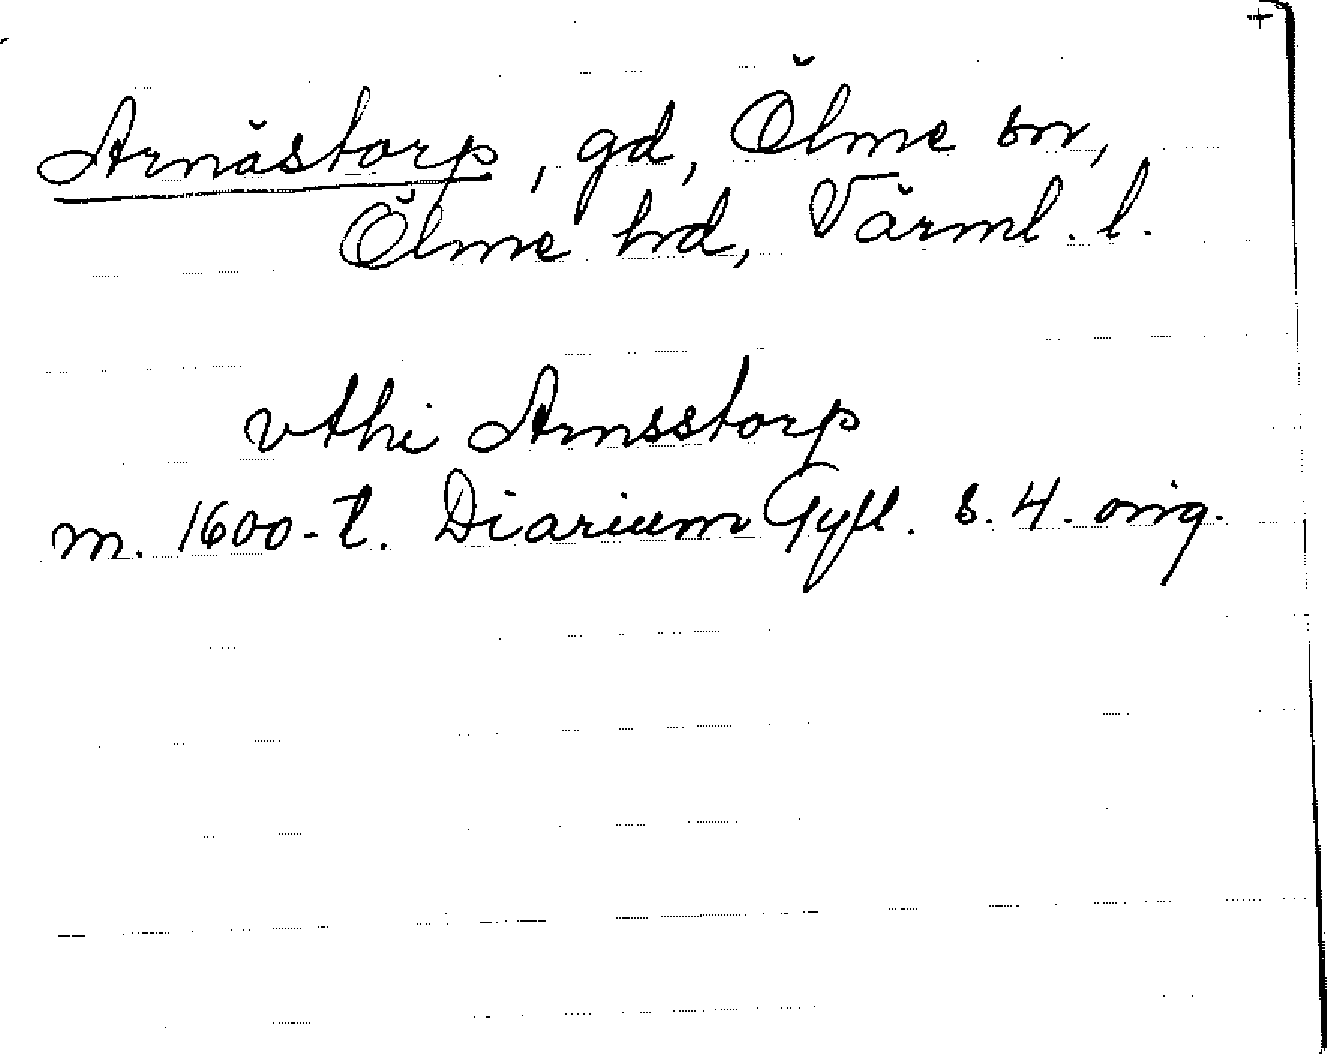 Arnästorp, gd, Ölme sn,
Ölme hd, Värml. l.
vthi Arnsstorp
m. 1600-t. Diarium Gyll. s. 4. orig.